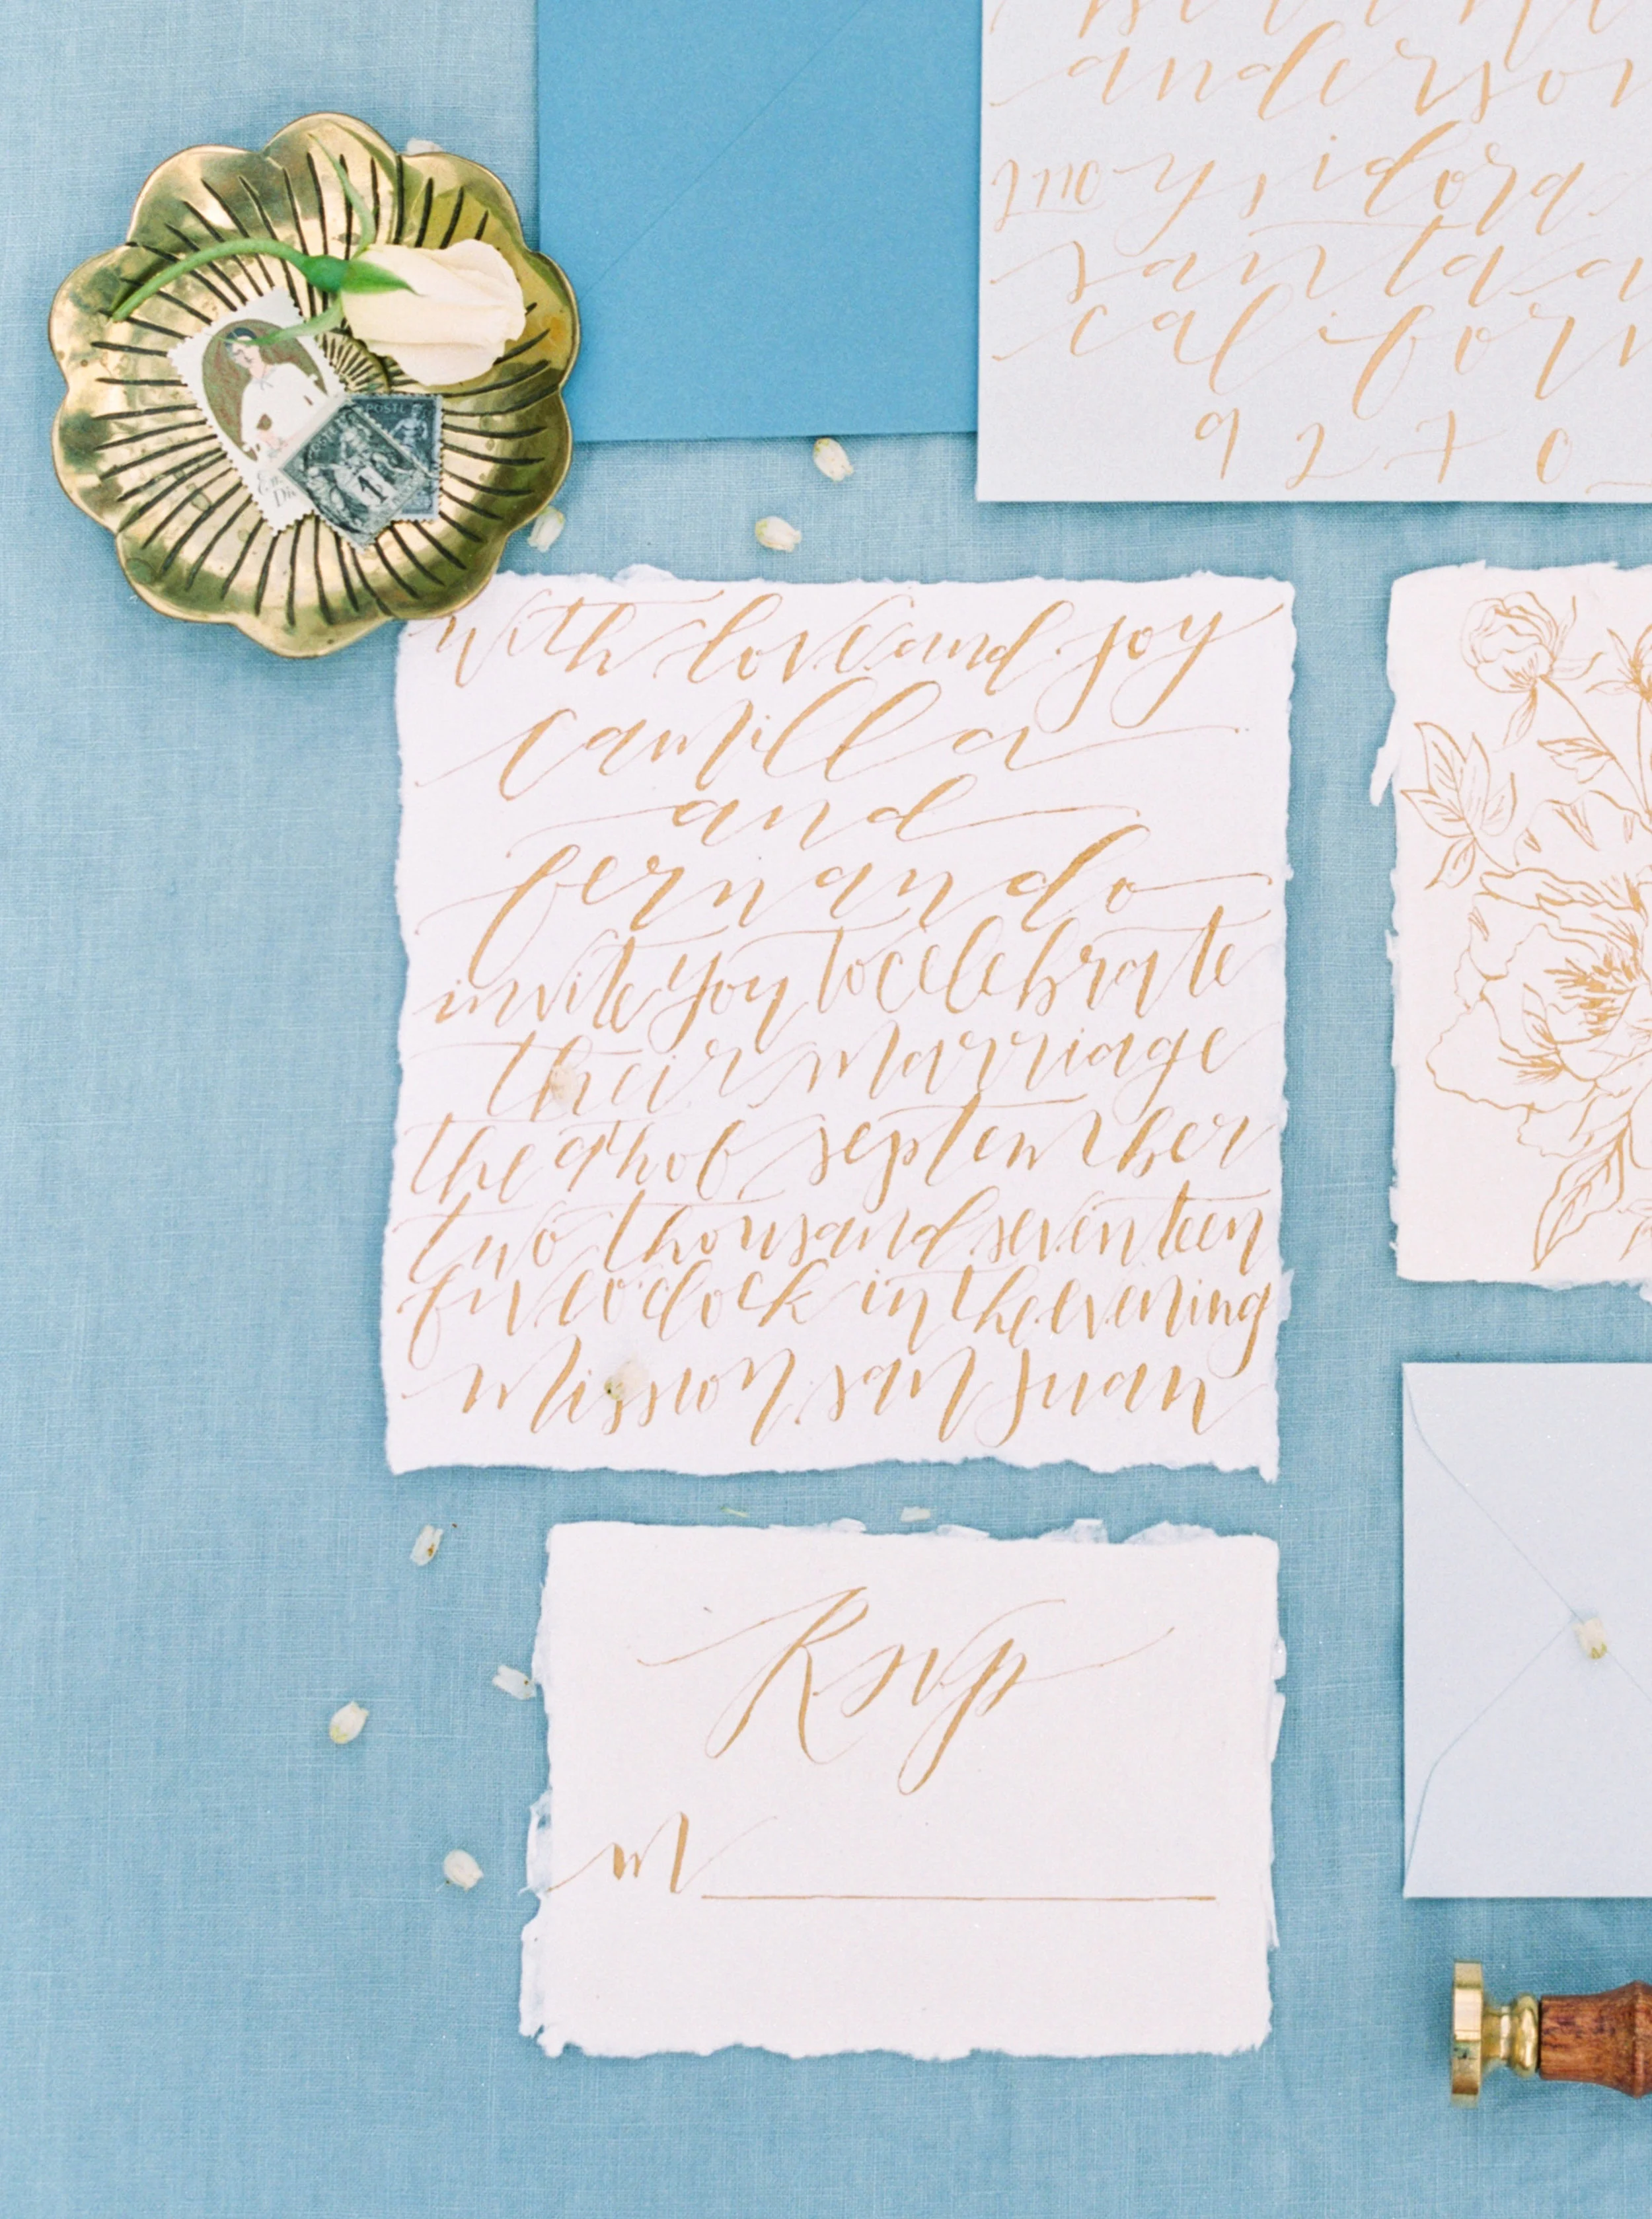 anderson
ysidora
santa a
californ
9270
With love and joy
camilla
and
fernando
invite you to celebrate
their marriage
the 9th of september
two thousand seventeen
five o'clock in the evening
Mission san Juan
Rsvp
M